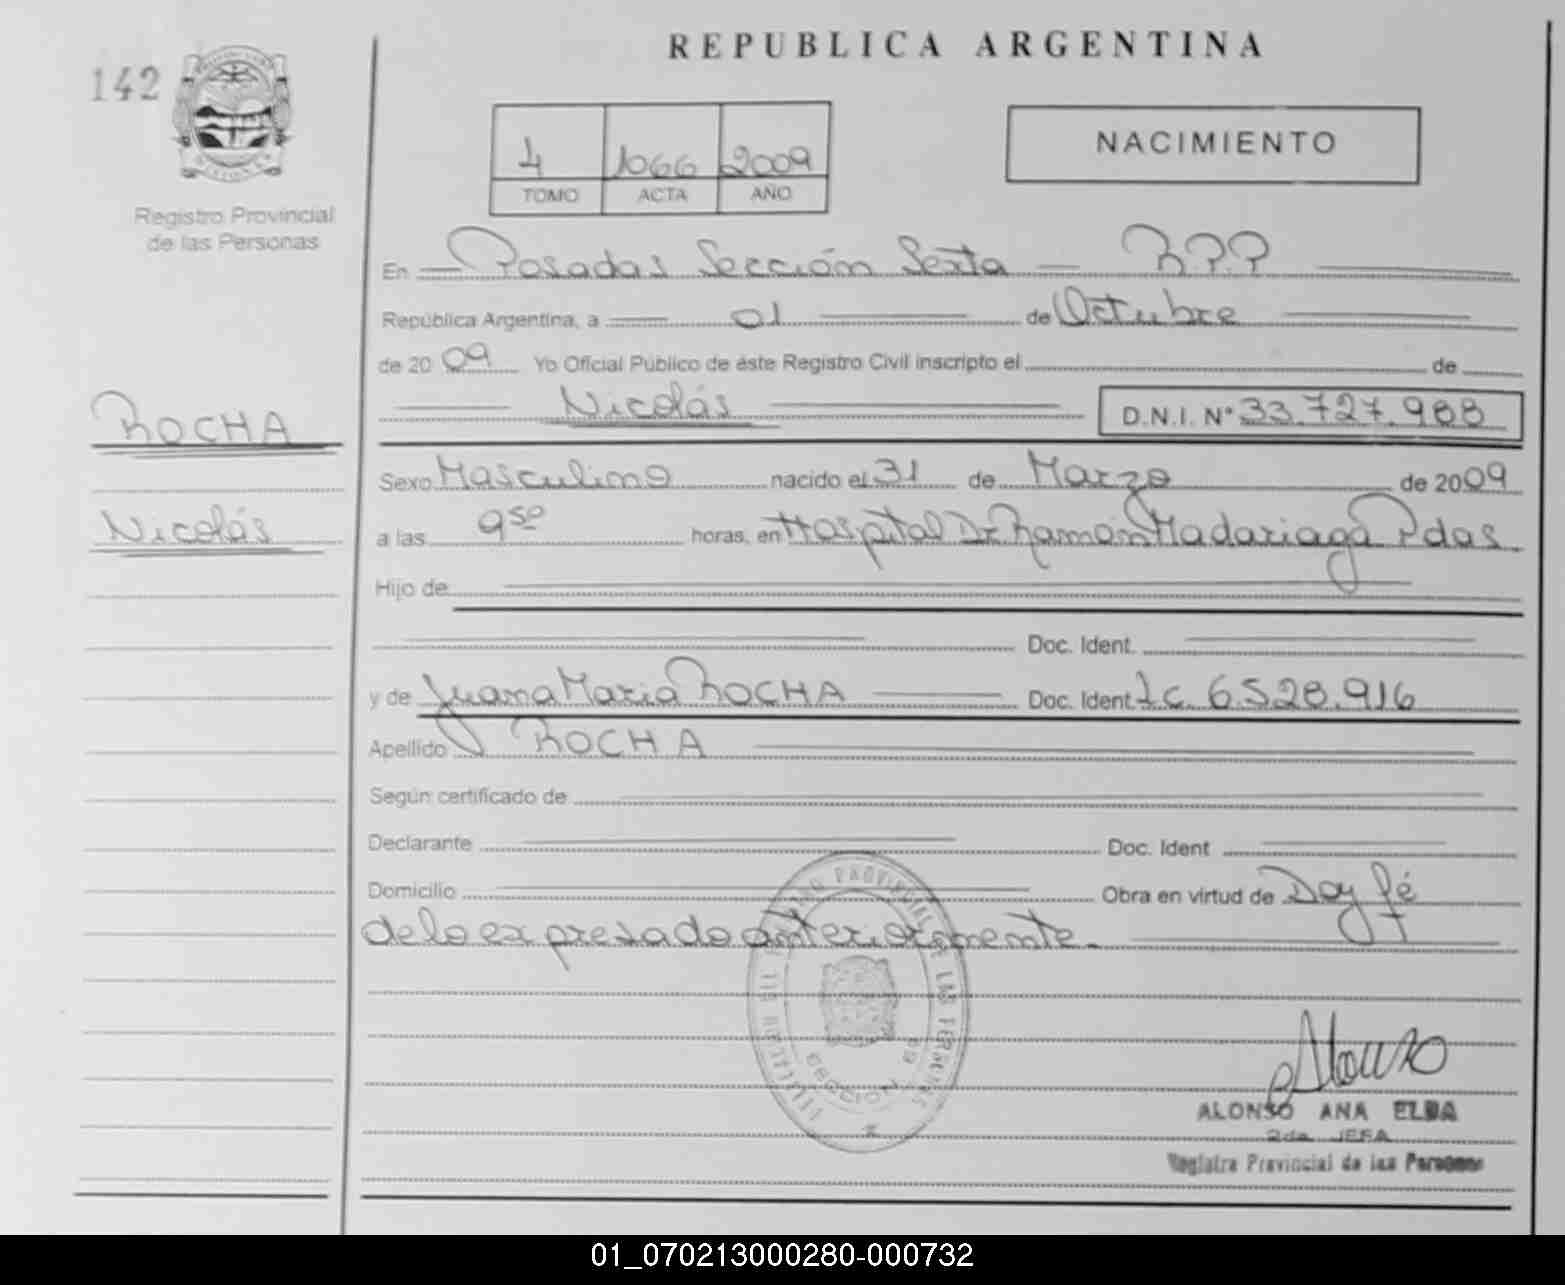 REPUBLICA ARGENTINA
142
4 1066 2009
TOMO ACTA AÑO
NACIMIENTO
Registro Provincial
de las Personas
En Posadas Sección Sexta R.P.P
República Argentina, a 01 de Octubre
de 2009 Yo Oficial Público de éste Registro Civil inscripto el de
Nicolás D.N.I. N° 33.727.988
ROCHA
Nicolás
Sexo Masculino nacido el 31 de Marzo de 2009
a las 9 50 horas, en Hospital Dr Ramón Madariaga Pdas.
Hijo de
Doc. Ident.
y de Juana Maria ROCHA Doc. Ident L.C. 6.528.916
Apellido ROCHA
Según certificado de
Declarante Doc. Ident
Domicilio Obra en virtud de Doy fé
de lo expresado anteriormente.
PROVINCIAL DE LAS PERSONAS
SECCION 6a
Alonso
ALONSO ANA ELBA
2da JEFA
Registro Provincial de las Personas
01_070213000280-000732